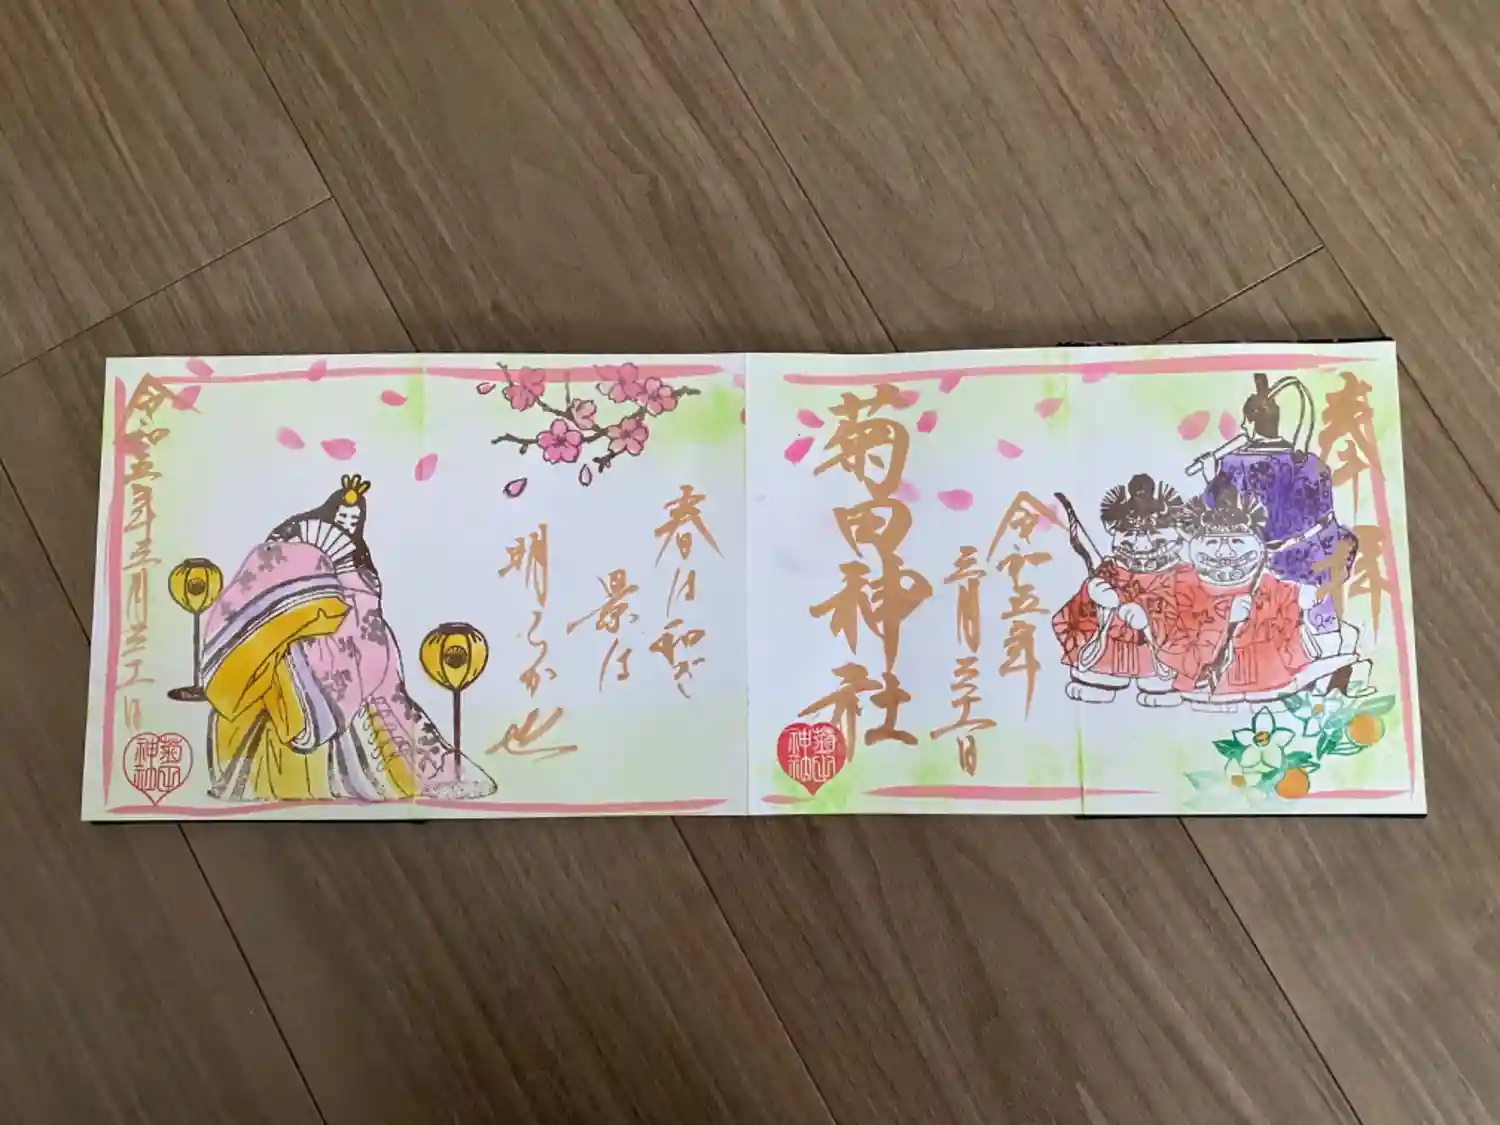 奉拝
令和五年
三月三十一日
菊田神社
菊田神社
春は和ぎ
景は
明らか也
令和五年三月三十一日
菊田神社